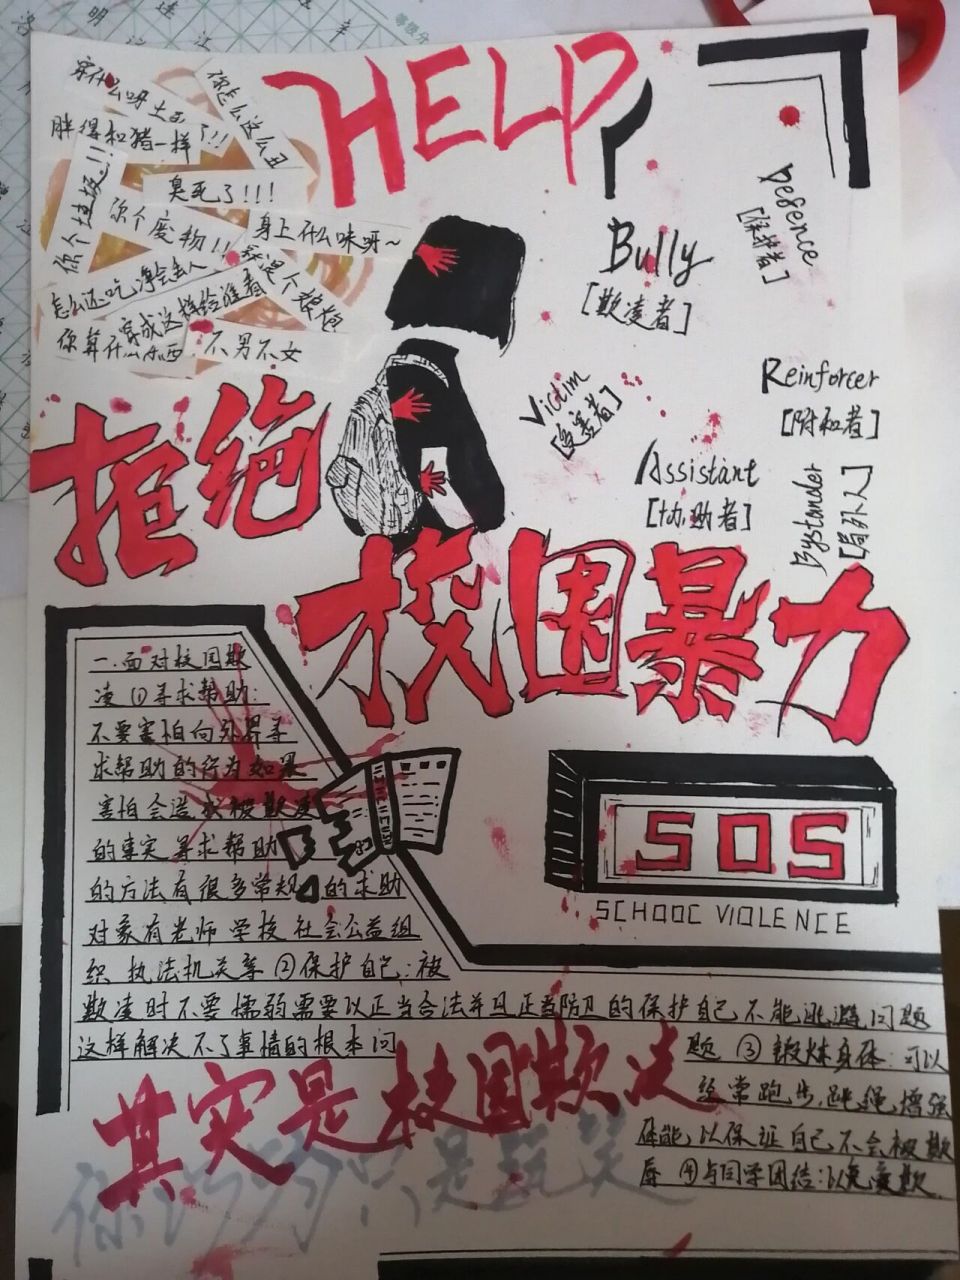 HELP
穿什么呀 土
你怎么这么丑
胖得和猪一样
了!!!
臭死了!!!
你个垃圾!!
你个废物!!
身上什么味呀~
怎么还吃
穿成这样给谁看
你算什么东西
不男不女
Defence
[保护者]
Bully
[欺凌者]
Reinforcer
[附和者]
Victim
[受害者]
Assistant
[协助者]
Bystander
[局外人]
拒绝
校园暴力
一.面对校园欺
凌①寻求帮助:
不要害怕向外界寻
求帮助的行为如果
害怕会造成被欺凌
的事实 寻求帮助
的方法有很多常规的求助
对象有老师 学校 社会公益组
织 执法机关等 ②保护自己:被
欺凌时不要懦弱需要以正当合法并且正当防卫的保护自己不能逃避问题
这样解决不了事情的根本问
题 ③锻炼身体:可以
经常跑步,跳绳,增强
体能,以保证自己不会被欺
辱 ④与同学团结:以免受欺
SOS
SCHOOC VIOLENCE
其实是校园欺凌
你以为只是玩笑